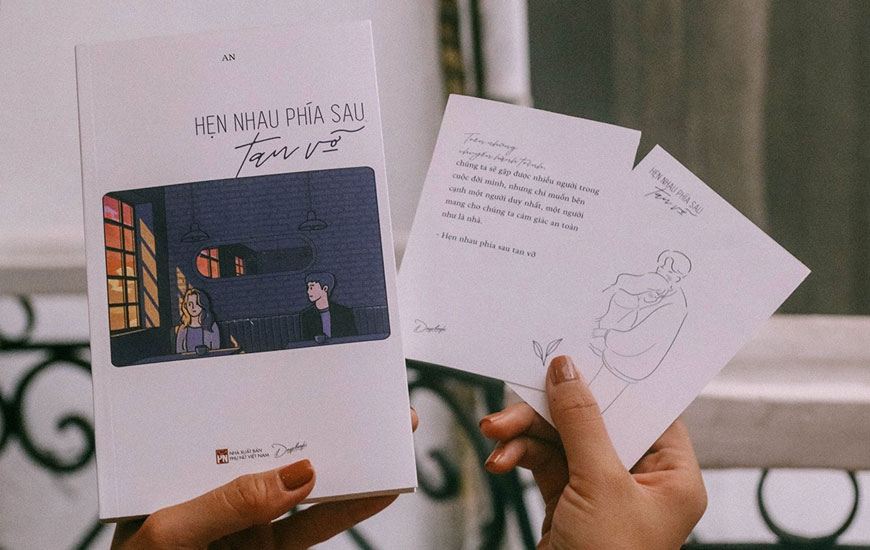 AN
HẸN NHAU PHÍA SAU
tan vỡ
NHÀ XUẤT BẢN
PHỤ NỮ VIỆT NAM
chúng ta sẽ gặp được nhiều người trong
cuộc đời mình, nhưng chỉ muốn bên
cạnh một người duy nhất, một người
mang cho chúng ta cảm giác an toàn
như là nhà.
- Hẹn nhau phía sau tan vỡ
HẸN NHAU PHÍA SAU
tan vỡ